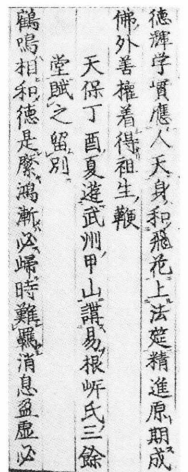 德輝学貫應人天身和飛花上法筵精進原期成
佛外善權着得祖生鞭
天保丁酉夏遊武州甲山講易根岸氏三餘
堂賦之留別
鶴鳴相和德是縻鴻漸必歸時難羈消息盈虛必